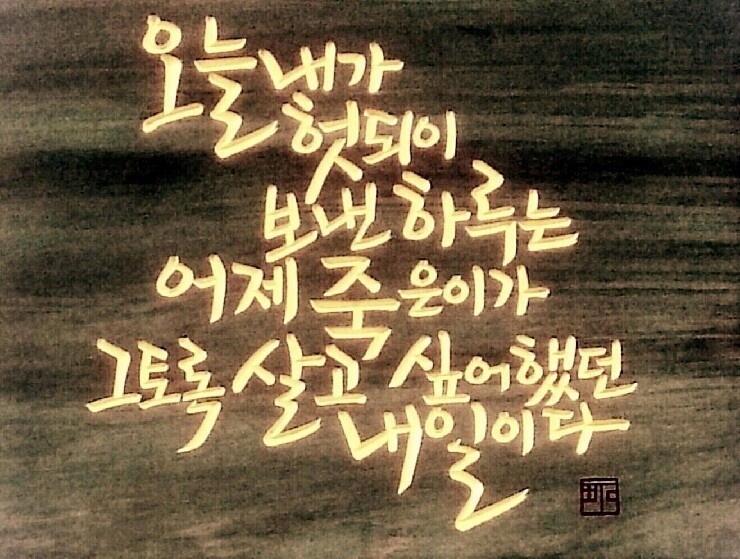 오늘 내가
헛되이
보낸 하루는
어제 죽은이가
그토록 살고 싶어했던
내일이다